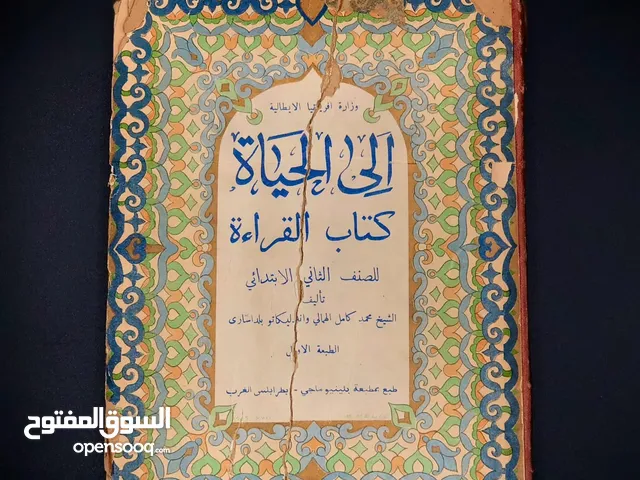 وزارة افريقيا الايطالية
الى الحياة
كتاب القراءة
للصنف الثاني الابتدائي
تأليف
الشيخ محمد كامل الهمالي بلداسارى
الطبعة الاولى
طبع بمطبعة بلينيو ماجي - بطرابلس الغرب
السوق المفتوح
opensooq.com